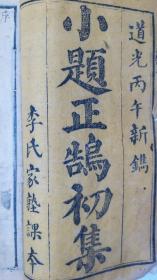 道光丙午新鐫
小題正鵠初集
李氏家塾課本
序